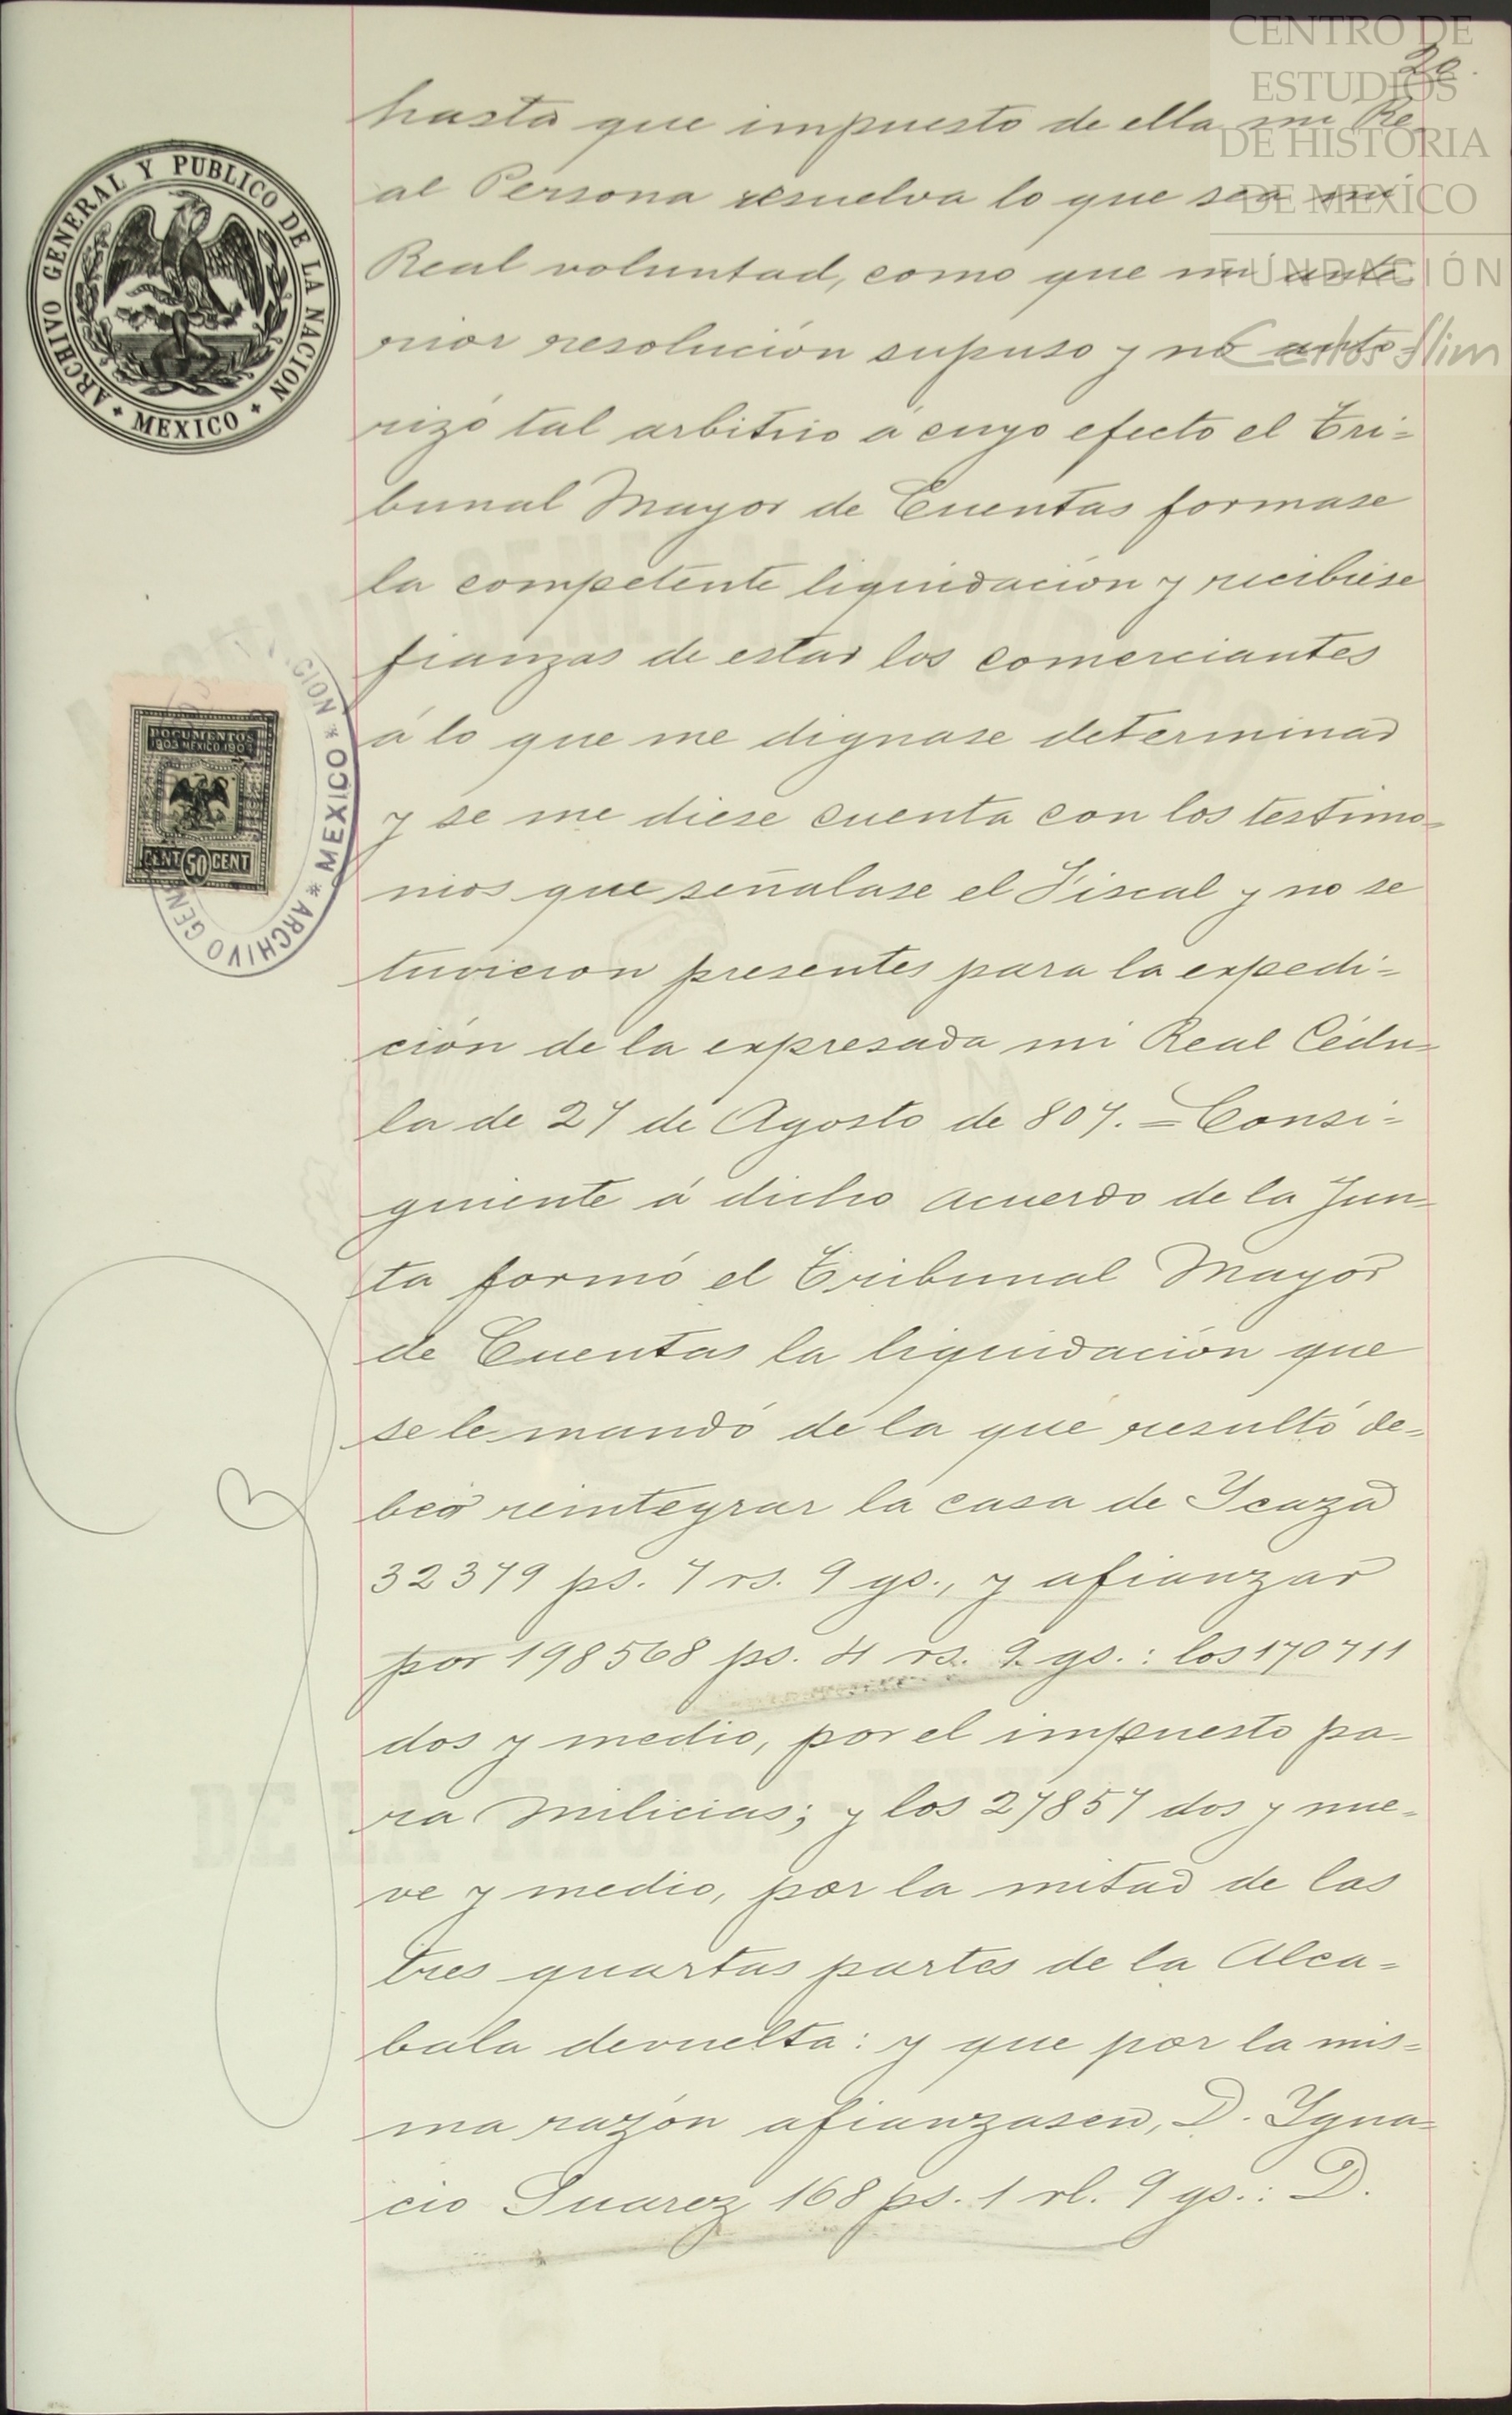 CENTRO DE
ESTUDIOS
DE HISTORIA
DE MEXICO
FUNDACIÓN
Carlos Slim
20.
ARCHIVO GENERAL Y PUBLICO DE LA NACION
* MEXICO *
DOCUMENTOS
1903 MEXICO 190
CENT 50 CENT
CION * MEXICO * ARCHIVO GEN
hasta que impuesto de ella mi Re-
al Persona resuelva lo que sea mi
Real voluntad, como que mi ante-
rior resolución supuso y no auto-
rizó tal arbitrio á cuyo efecto el Tri=
bunal Mayor de Cuentas formase
la competente liquidación y recibiese
fianzas de estar los comerciantes
á lo que me dignase determinar
y se me diese cuenta con los testimo=
nios que señalase el Fiscal y no se
tuvieron presentes para la expedi=
ción de la expresada mi Real Cédu=
la de 27 de Agosto de 807. = Consi=
guiente á dicho acuerdo de la Jun=
ta formó el Tribunal Mayor
de Cuentas la liquidación que
se le mandó de la que resultó de=
ber reintegrar la casa de Ycaza
32379 ps. 7 rs. 9 gs., y afianzar
por 198568 ps. 4 rs. 9 gs.: los 170711
dos y medio, por el impuesto pa-
ra Milicias; y los 27857 dos y nue-
ve y medio, por la mitad de las
tres quartas partes de la Alca=
bala devuelta: y que por la mis=
ma razón afianzasen, D. Ygna=
cio Suarez 168 ps. 1 rl. 9 gs.: D.